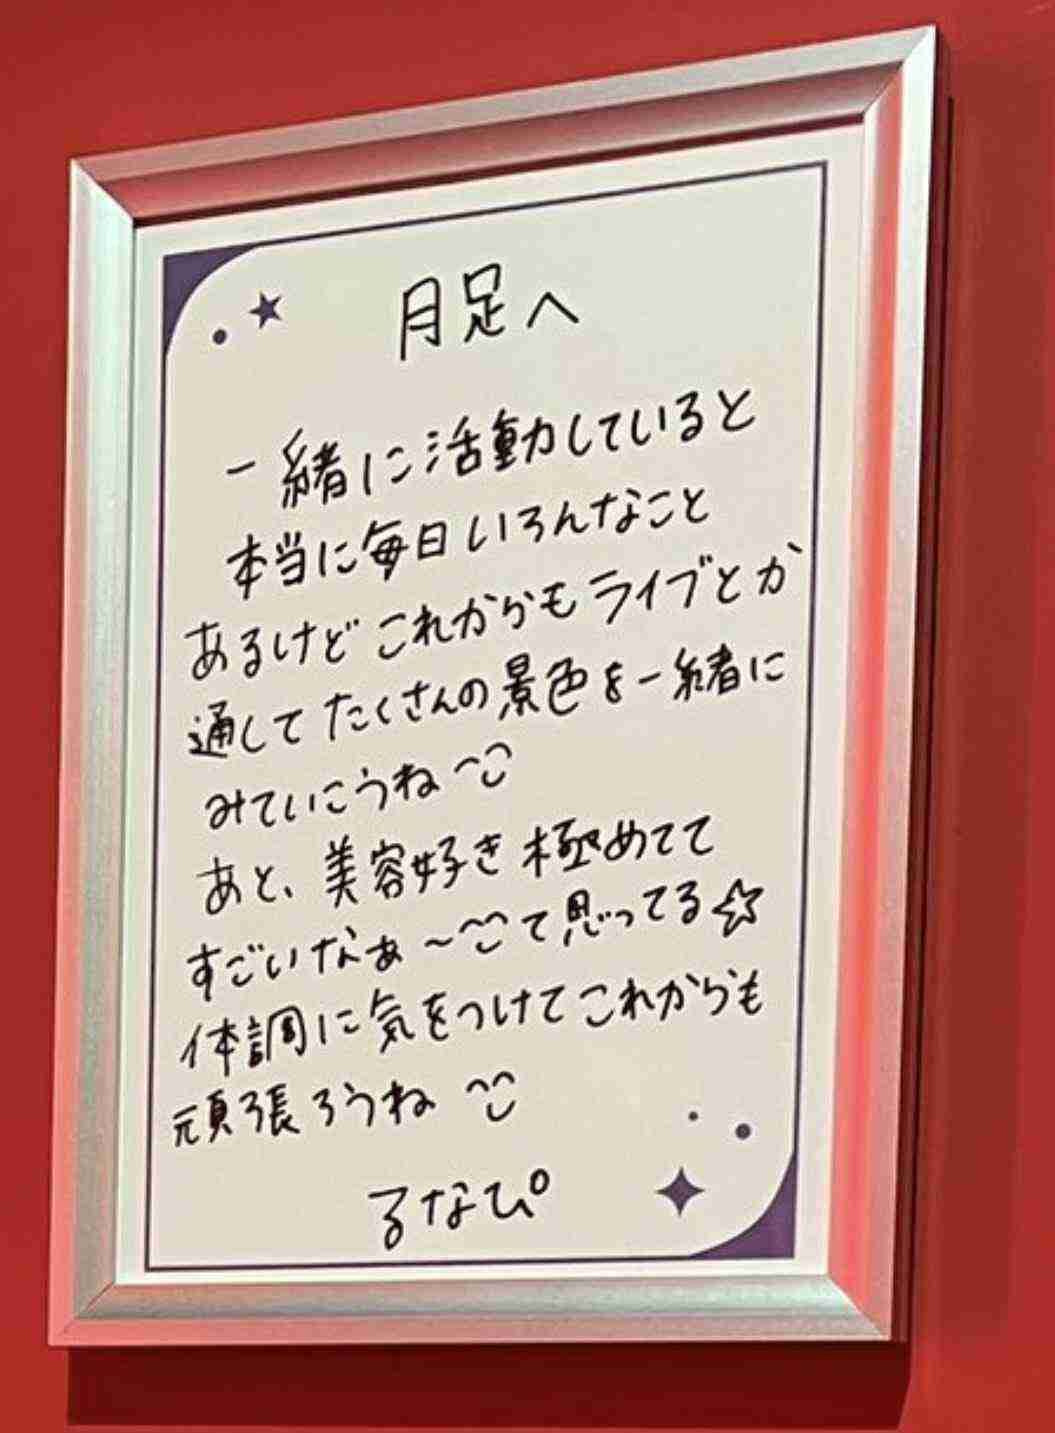 月足へ
一緒に活動していると
本当に毎日いろんなこと
あるけどこれからもライブとか
通してたくさんの景色を一緒に
みていこうね
あと、美容好き極めてて
すごいなぁ〜て思ってる☆
体調に気をつけてこれからも
頑張ろうね
るなぴ